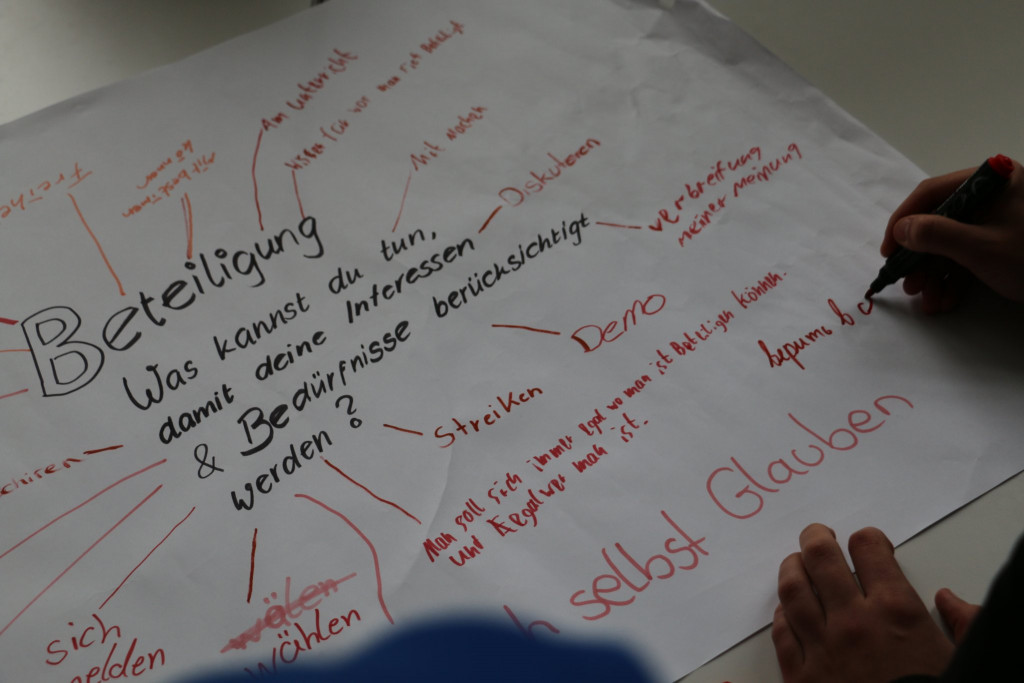 Am Unterricht
Mit machen
Mit bestimmen
können
Diskutieren
verbreitung
meiner meinung
Beteiligung
Was kannst du tun,
damit deine Interessen
& Bedürfnisse berücksichtigt
werden?
Demo
Streiken
Man soll sich immer egal wo man ist Beteiligen können.
und Egal wer man ist.
selbst Glauben
wälen
wählen
sich
melden